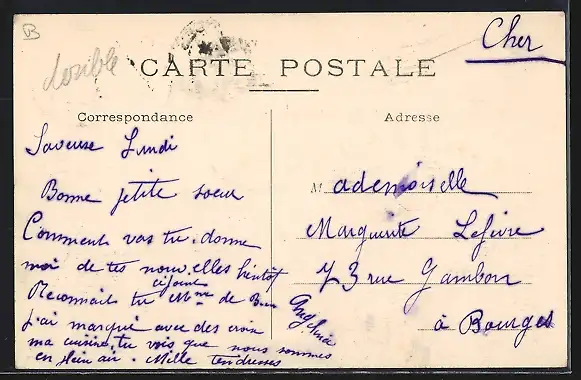 B
double
Cher
CARTE POSTALE
Correspondance
Adresse
Saveuse Lundi
Bonne petite soeur
Comment vas tu. donne
moi de tes nouvelles bientôt
ci joint
Reconnais tu Mme de
J'ai marqué avec des croix
ma cuisine, tu vois que nous sommes
en plein air. Mille tendresses
Mademoiselle
Marguerite Lefèvre
73 rue Gambon
à Bourges